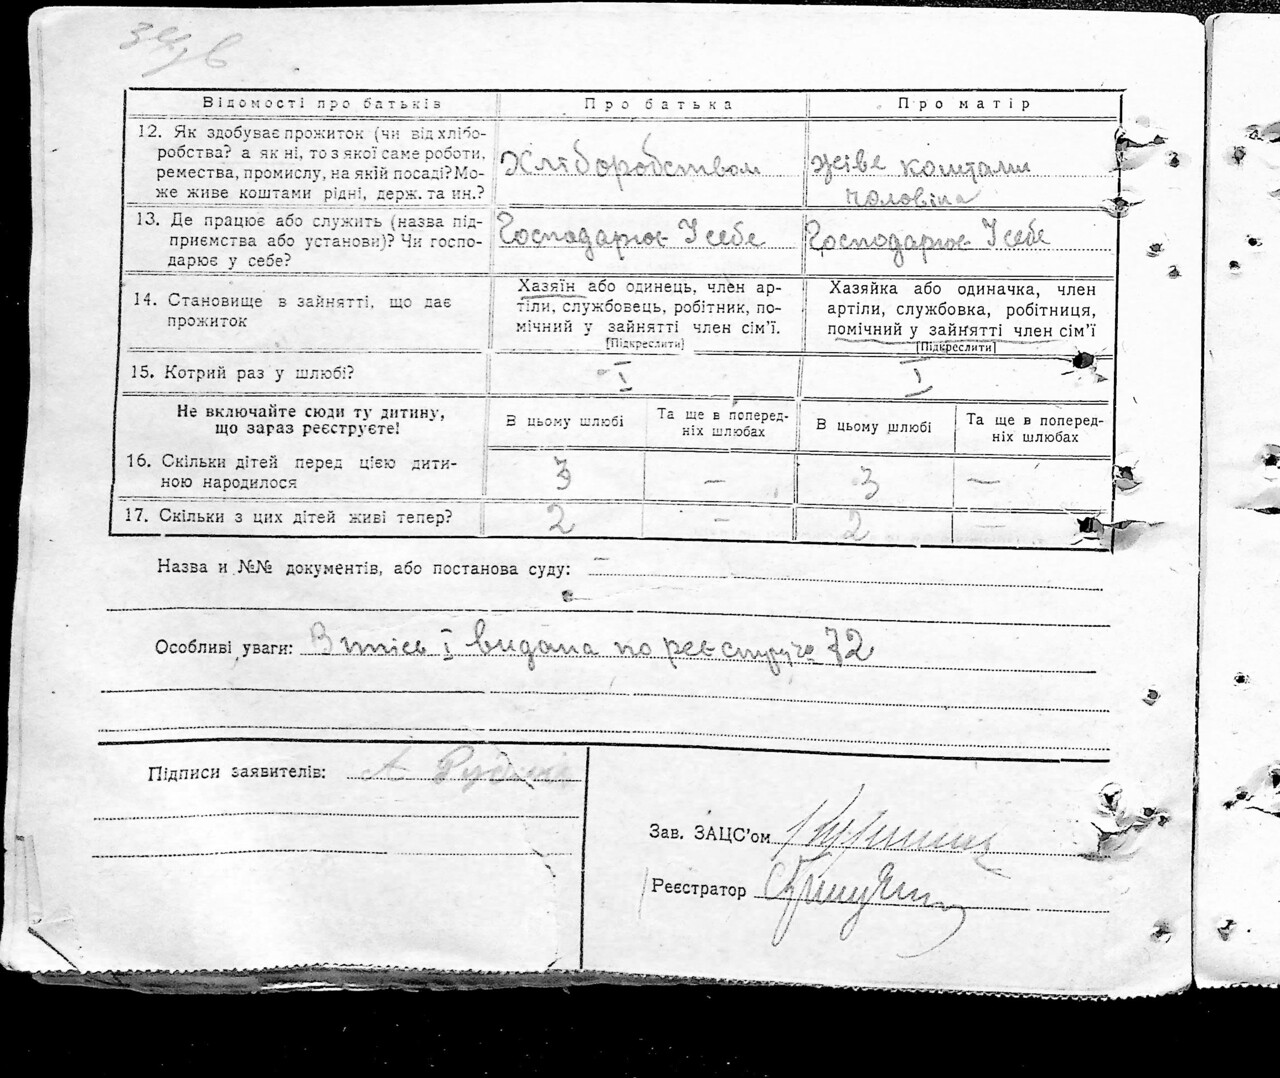 Відомості про батьків Про батька Про матір
12. Як здобуває прожиток (чи від хлібо-
робства? а як ні, то з якої саме роботи,
ремества, промислу, на якій посаді? Мо-
же живе коштами рідні, держ. та ин.?
Хліборобством
живе коштами
чоловіка
13. Де працює або служить (назва під-
приємства або установи)? Чи госпо-
дарює у себе?
Господарює У себе
Господарює У себе
14. Становище в зайнятті, що дає
прожиток
Хазяїн або одинець, член ар-
тіли, службовець, робітник, по-
мічний у зайнятті член сім'ї.
[Підкреслити]
Хазяйка або одиначка, член
артіли, службовка, робітниця,
помічний у зайнятті член сім'ї
[Підкреслити]
15. Котрий раз у шлюбі? I I
Не включайте сюди ту дитину,
що зараз реєструєте!
В цьому шлюбі
Та ще в поперед-
ніх шлюбах
В цьому шлюбі
Та ще в поперед-
ніх шлюбах
16. Скільки дітей перед цією дити-
ною народилося
3 — 3 —
17. Скільки з цих дітей живі тепер? 2 — 2 —
Назва и №№ документів, або постанова суду: —
Особливі уваги: Впись I видана по реєстру № 72
Підписи заявителів: А
Зав. ЗАЦС'ом
Реєстратор